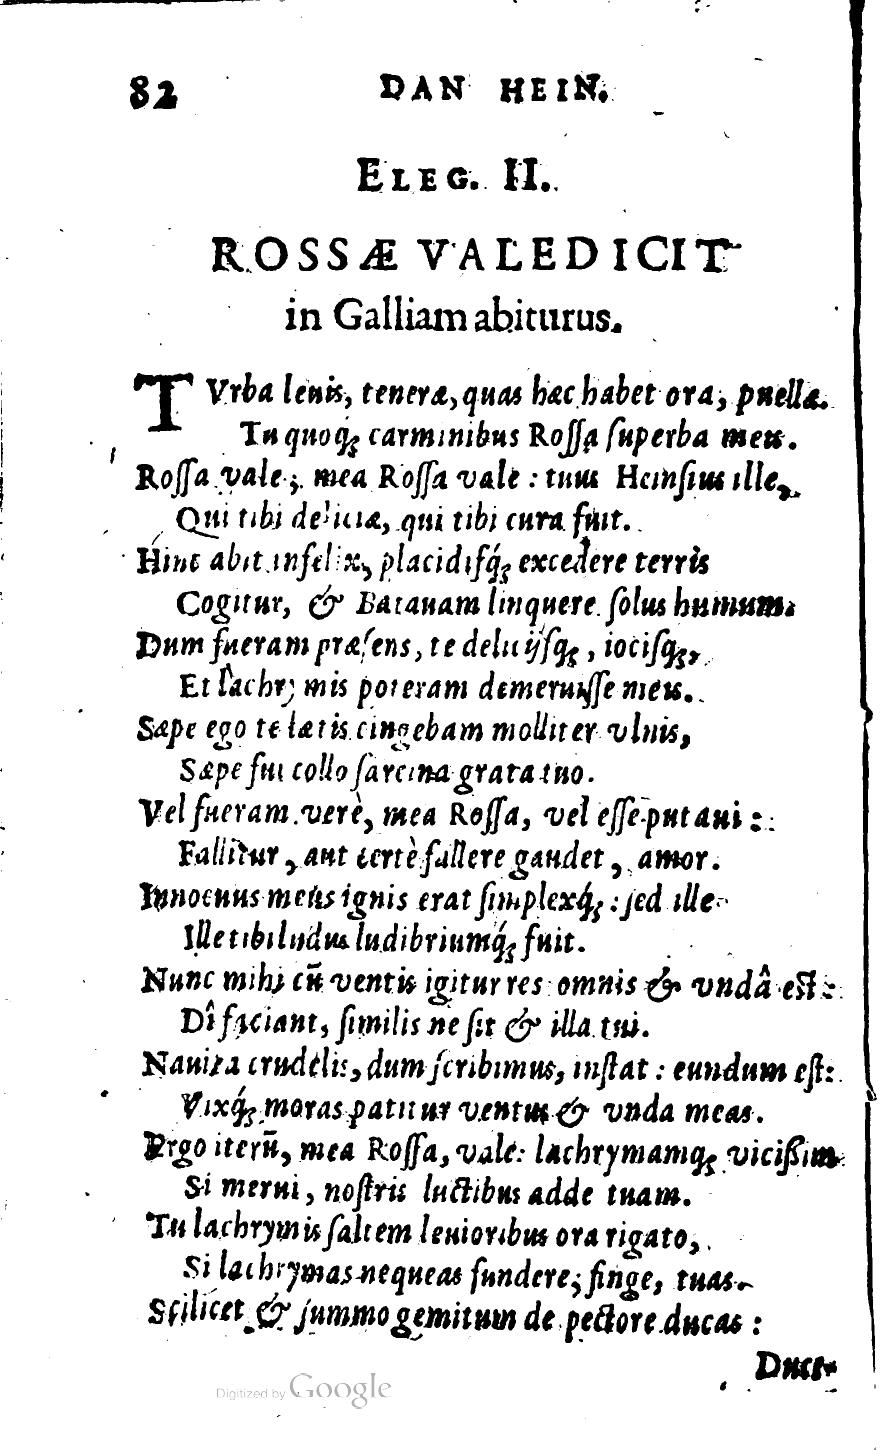 82 DAN HEIN.
ELEG. II.
ROSSÆ VALEDICIT
in Galliam abiturus.
TVrba leuis, teneræ, quas hæc habet ora, puellæ.
Tu quoq́ꝫ carminibus Rossa superba meis.
Rossa vale; mea Rossa vale: tuus Heinsius ille,
Qui tibi deliciæ, qui tibi cura fuit.
Hinc abit infelix, placidisq́ꝫ excedere terris
Cogitur, & Batauam linquere solus humum.
Dum fueram præsens, te delicijsqꝫ, iocisqꝫ,
Et lachrymis poteram demeruisse meis.
Sæpe ego te lætis cingebam molliter vlnis,
Sæpe fui collo sarcina grata tuo.
Vel fueram verè, mea Rossa, vel esse putaui:
Fallitur, aut certè fallere gaudet, amor.
Innocuus meus ignis erat simplexq́ꝫ: sed ille
Ille tibi ludus ludibriumq́ꝫ fuit.
Nunc mihi cū ventis igitur res omnis & vndâ est:
Dî faciant, similis ne sit & illa tui.
Nauita crudelis, dum scribimus, instat: eundum est:
Vixq́ꝫ moras patitur ventus & vnda meas.
Ergo iterū, mea Rossa, vale: lachrymamqꝫ vicißim
Si merui, nostris luctibus adde tuam.
Tu lachrymis saltem leuioribus ora rigato,
Si lachrymas nequeas fundere; finge, tuas.
Scilicet & summo gemitum de pectore ducas:
Digitized by Google